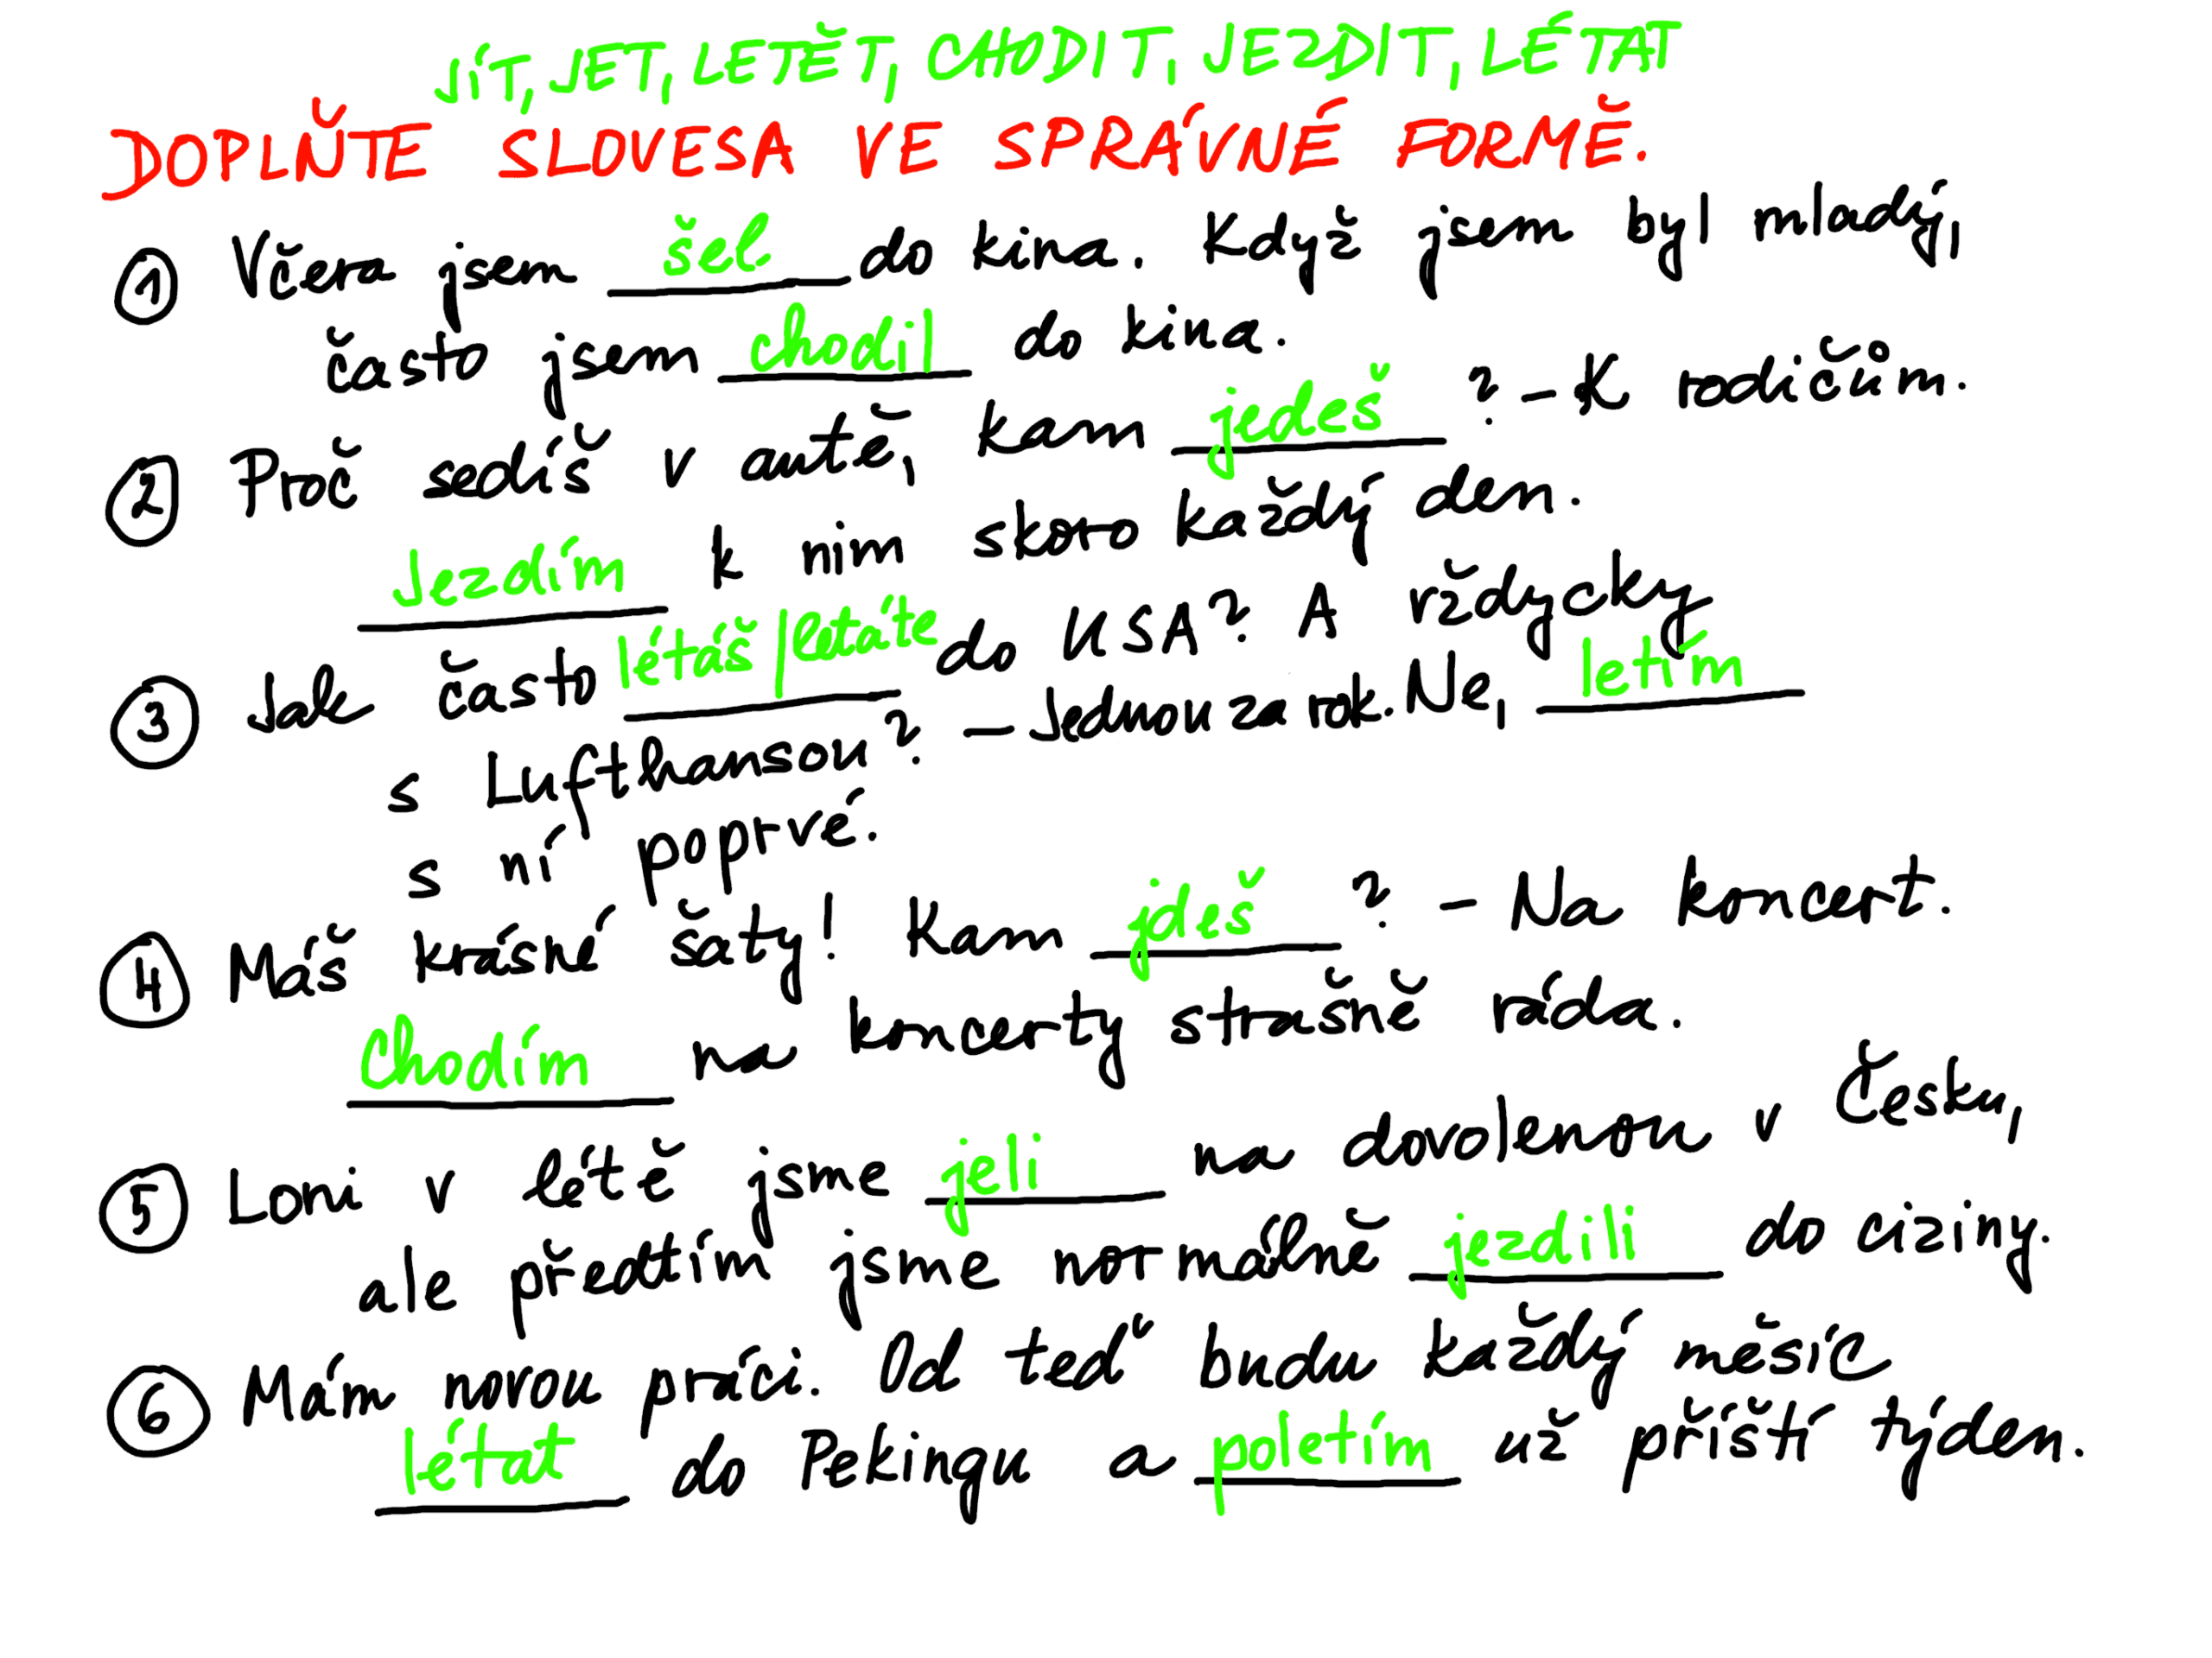 JÍT, JET, LETĚT, CHODIT, JEZDIT, LÉTAT
DOPLŇTE SLOVESA VE SPRÁVNÉ FORMĚ.
1 Včera jsem šel do kina. Když jsem byl mladý,
často jsem chodil do kina.
2 Proč sedíš v autě, kam jedeš? – K rodičům.
Jezdím k nim skoro každý den.
3 Jak často létáš/létáte do USA? A vždycky
s Lufthansou? – Jednou za rok. Ne, letím
s ní poprvé.
4 Máš krásné šaty! Kam jdeš? – Na koncert.
Chodím na koncerty strašně ráda.
5 Loni v létě jsme jeli na dovolenou v Česku,
ale předtím jsme normálně jezdili do ciziny.
6 Mám novou práci. Od teď budu každý měsíc
létat do Pekingu a poletím už příští týden.